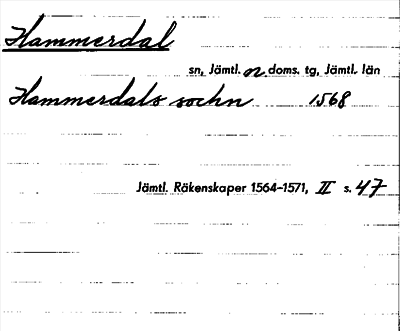 Hammerdal
sn, Jämtl. n doms. tg, Jämtl. län
Hammerdals sochn 1568
Jämtl. Räkenskaper 1564-1571, II s. 47